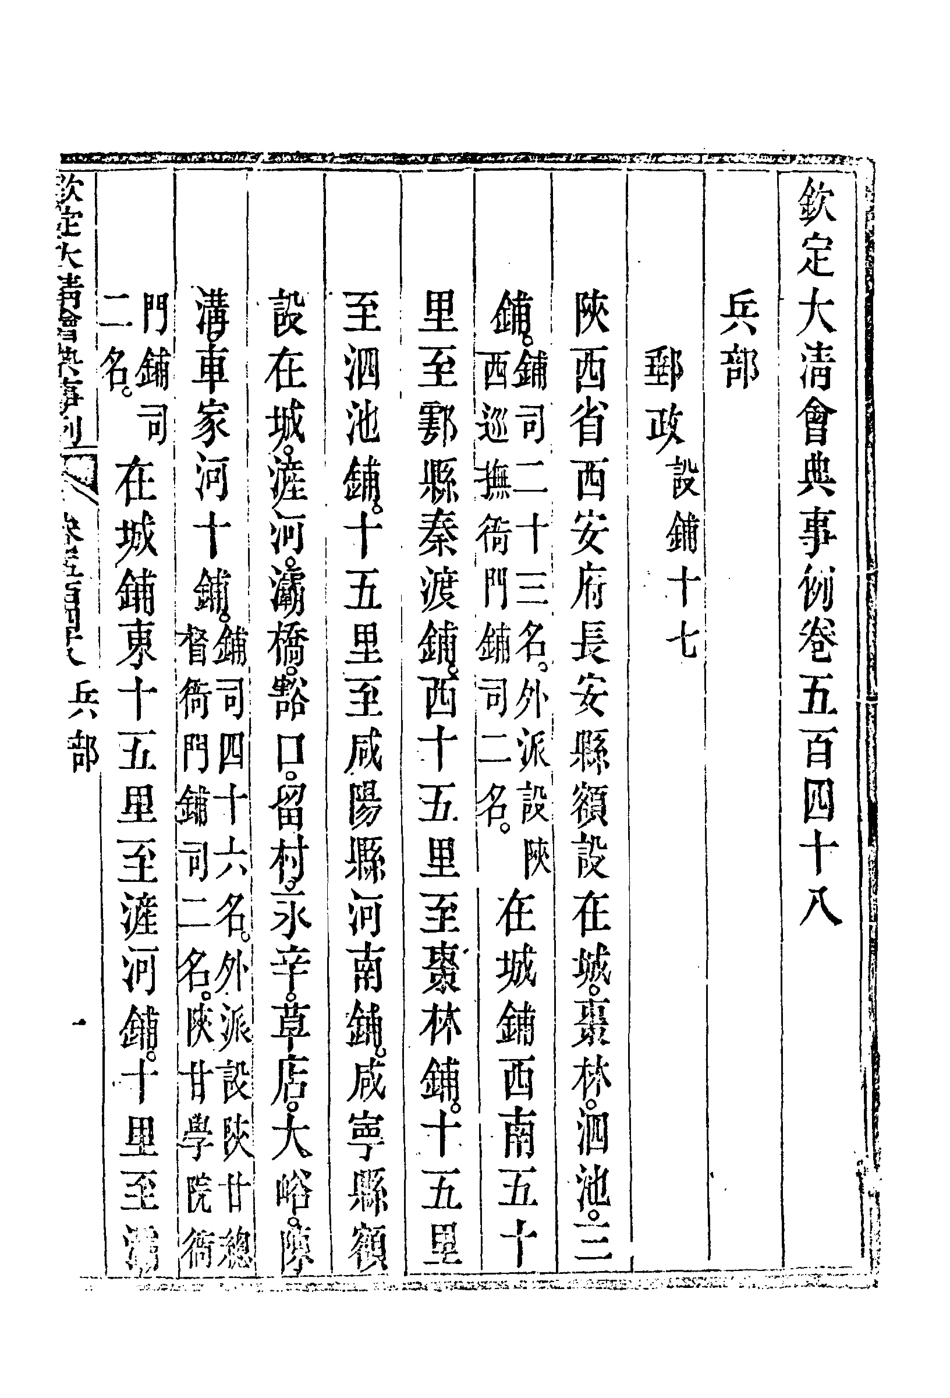 欽定大清會典事例卷五百四十八
兵部
郵政設鋪十七
陝西省西安府長安縣額設在城。棗林。泗池。三
鋪。鋪司二十三名。外派設陝西巡撫衙門鋪司二名。在城鋪西南五十
里至鄠縣秦渡鋪。西十五里至棗林鋪。十五里
至泗池鋪。十五里至咸陽縣河南鋪。咸寧縣額
設在城。滻河。灞橋。豁口。留村。永辛。草店。大峪。陳
溝。車家河十鋪。鋪司四十六名。外派設陝甘總督衙門鋪司二名。陝甘學院衙
門鋪司二名。在城鋪東十五里至滻河鋪。十里至灞
欽定大清會典事例 卷五百四十八 兵部 一